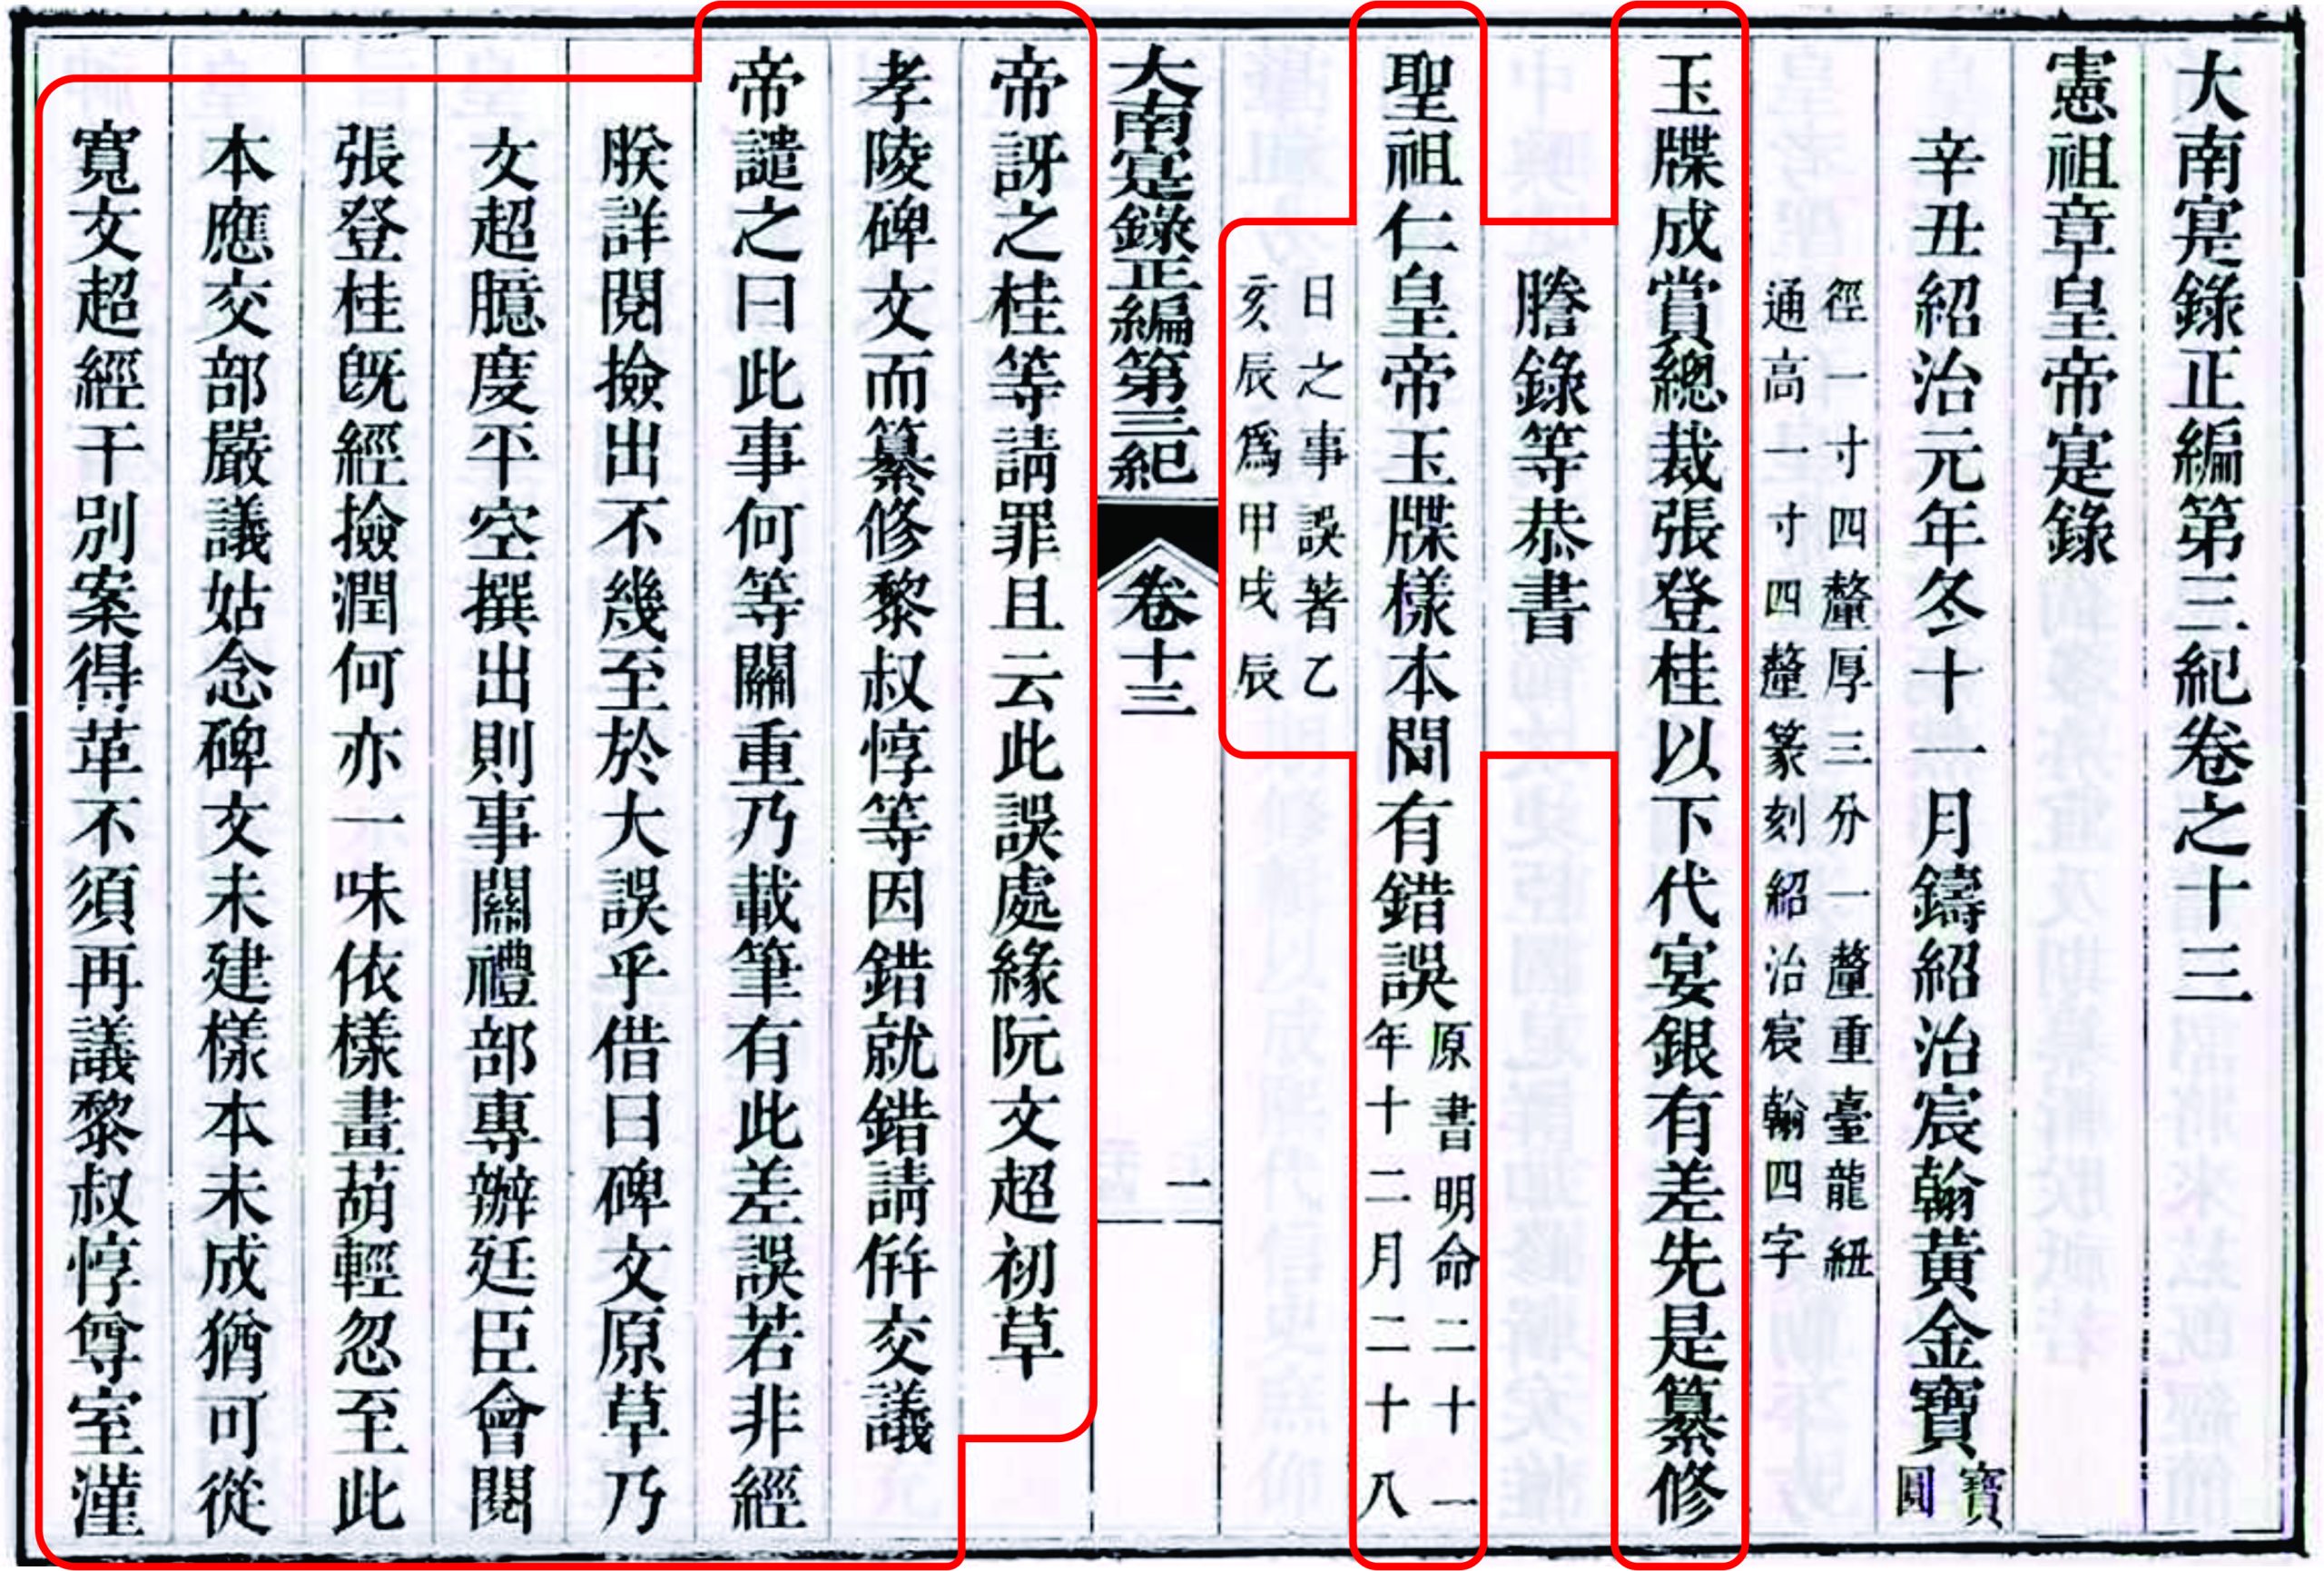 大南寔錄正編第三紀卷之十三
憲祖章皇帝寔錄
辛丑紹治元年冬十一月鑄紹治宸翰黃金寶寶圓
徑一寸四釐厚三分一釐重臺龍紐
通高一寸四釐篆刻紹治宸翰四字
玉牒成賞總裁張登桂以下代宴銀有差先是纂修
謄錄等恭書
聖祖仁皇帝玉牒樣本間有錯誤原書明命二十一
年十二月二十八
日之事誤著乙
亥辰爲甲戌辰
大南寔錄正編第三紀 卷十三 二
帝訝之桂等請罪且云此誤處緣阮文超初草
孝陵碑文而纂修黎叔惇等因錯就錯請倂交議
帝譴之曰此事何等關重乃載筆有此差誤若非經
朕詳閱撿出不幾至於大誤乎借曰碑文原草乃
文超臆度平空撰出則事關禮部專辦廷臣會閱
張登桂旣經撿潤何亦一味依樣畫葫輕忽至此
本應交部嚴議姑念碑文未建樣本未成猶可從
寬文超經干別案得革不須再議黎叔惇尊室瀍